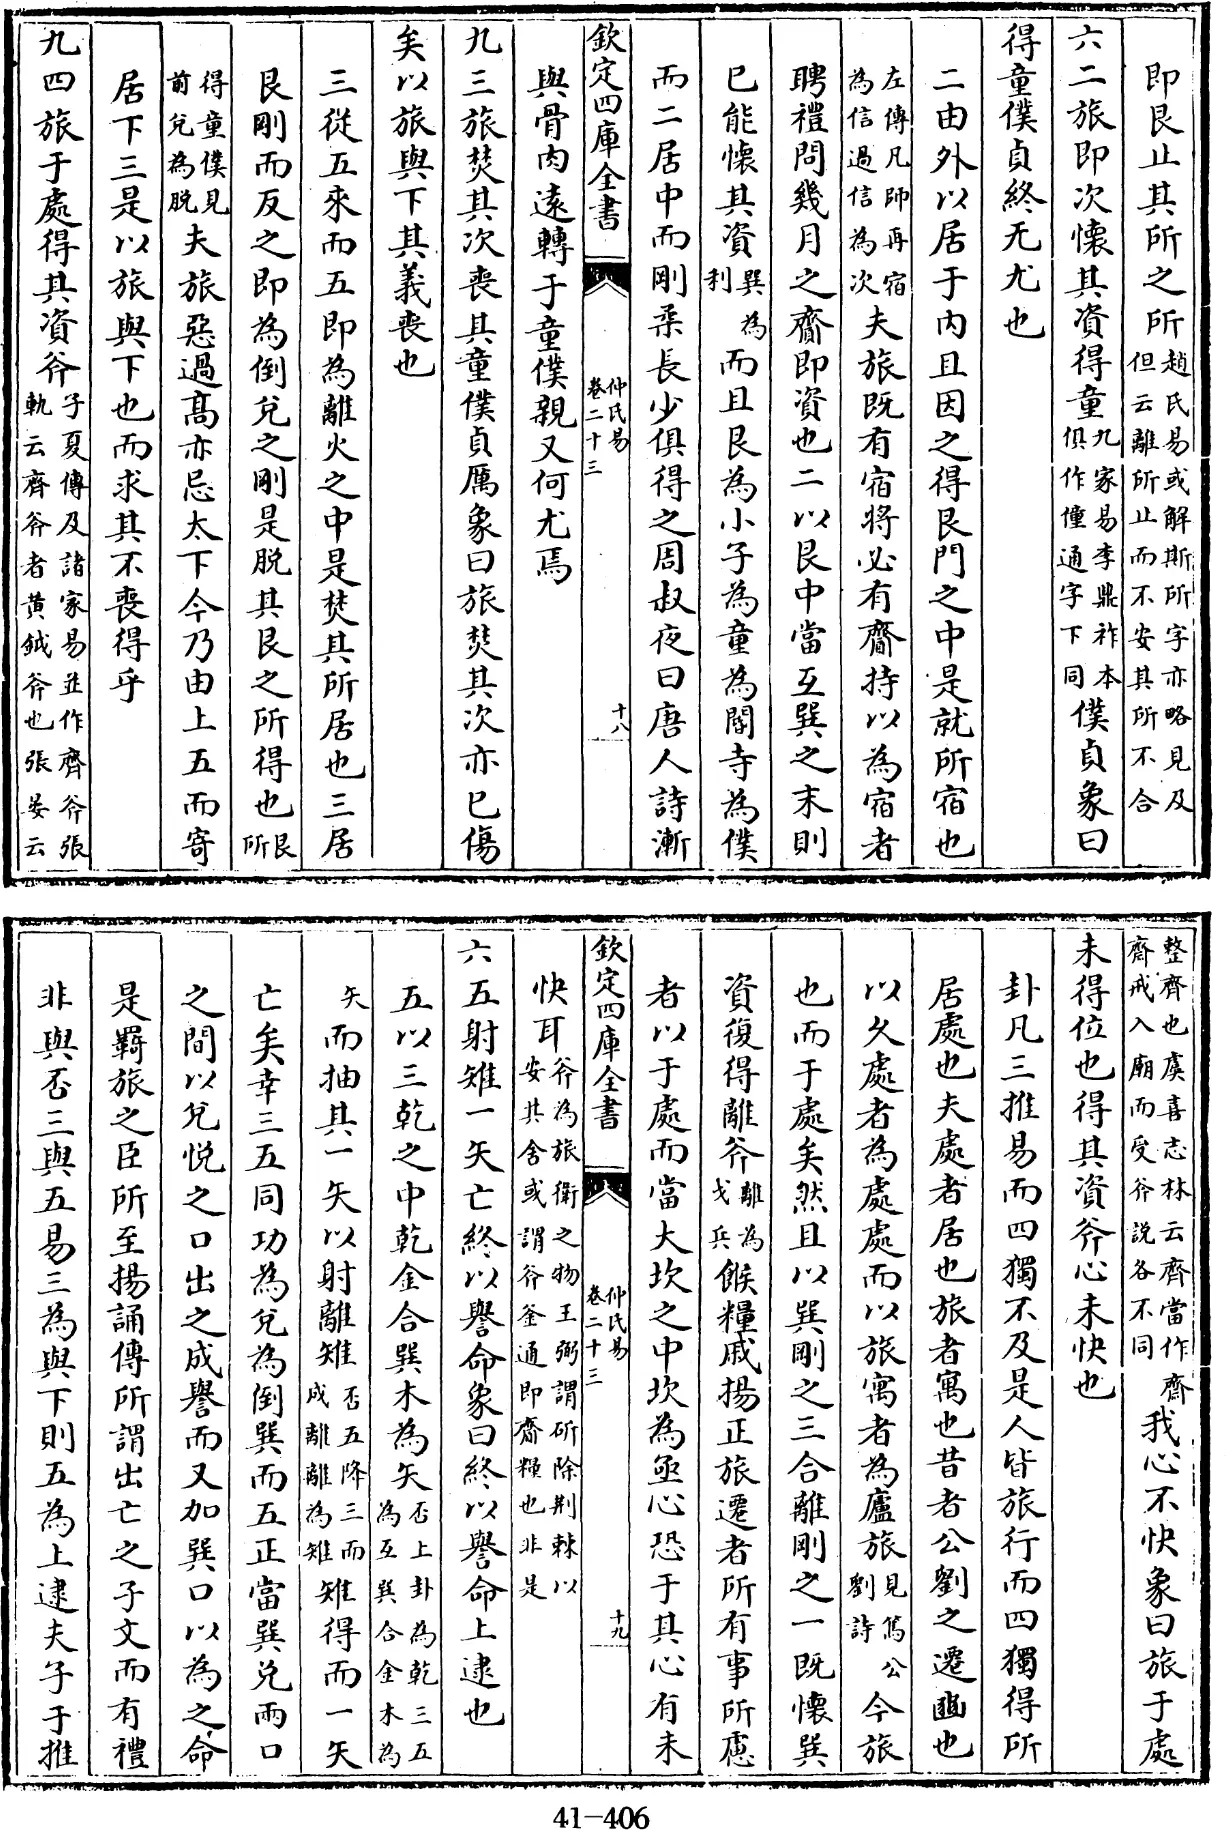 即艮止其所之所趙氏易或解斯所字亦略見及但云離所止而不安其所不合
六二旅即次懷其資得童九家易李鼎祚本俱作僮通字下同僕貞象曰
得童僕貞終无尤也
二由外以居于内且因之得艮門之中是就所宿也
左傳凡師再宿為信過信為次夫旅既有宿將必有齎持以為宿者
聘禮問幾月之齎即資也二以艮中當互巽之末則
已能懷其資巽為利而且艮為小子為童為閽寺為僕
而二居中而剛柔長少俱得之周叔夜曰唐人詩漸
欽定四庫全書
仲氏易
卷二十三
十八
與骨肉遠轉于童僕親又何尤焉
九三旅焚其次喪其童僕貞厲象曰旅焚其次亦已傷
矣以旅與下其義喪也
三從五來而五即為離火之中是焚其所居也三居
艮剛而反之即為倒兌之剛是脱其艮之所得也艮所
得童僕見前兌為脱夫旅惡過髙亦忌太下今乃由上五而寄
居下三是以旅與下也而求其不喪得乎
九四旅于處得其資斧子夏傳及諸家易並作齊斧張軌云齊斧者黃鉞斧也張晏云
整齊也虞喜志林云齊當作齋齊戒入廟而受斧説各不同我心不快象曰旅于處
未得位也得其資斧心未快也
卦凡三推易而四獨不及是人皆旅行而四獨得所
居處也夫處者居也旅者寓也昔者公劉之遷豳也
以久處者為處處而以旅寓者為廬旅見篤公劉詩今旅
也而于處矣然且以巽剛之三合離剛之一既懷巽
資復得離斧離為戈兵餱糧戚揚正旅遷者所有事所慮
者以于處而當大坎之中坎為亟心恐于其心有未
欽定四庫全書
仲氏易
卷二十三
十九
快耳斧為旅衛之物王弼謂斫除荆棘以安其舍或謂斧釜通即齎糧也非是
六五射雉一矢亡終以譽命象曰終以譽命上逮也
五以三乾之中乾金合巽木為矢否上卦為乾三五為互巽合金木為
矢而抽其一矢以射離雉否五降三而成離離為雉雉得而一矢
亡矣幸三五同功為兌為倒巽而五正當巽兌兩口
之間以兌悦之口出之成譽而又加巽口以為之命
是羇旅之臣所至揚誦傳所謂出亡之子文而有禮
非與否三與五易三為與下則五為上逮夫子于推
41-406